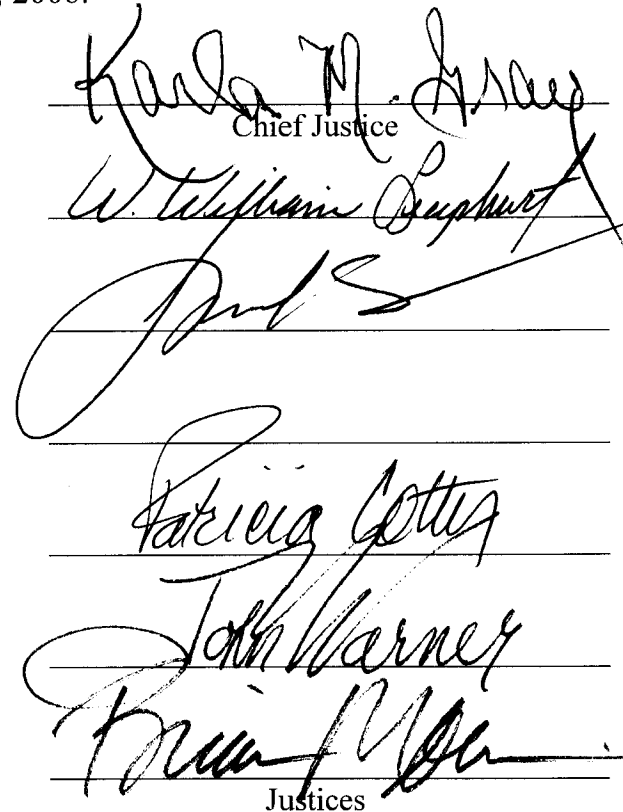 2006.
Karla M. Gray
Chief Justice
W. William Leaphart
Patricia Cotter
John Warner
Brian Morris
Justices